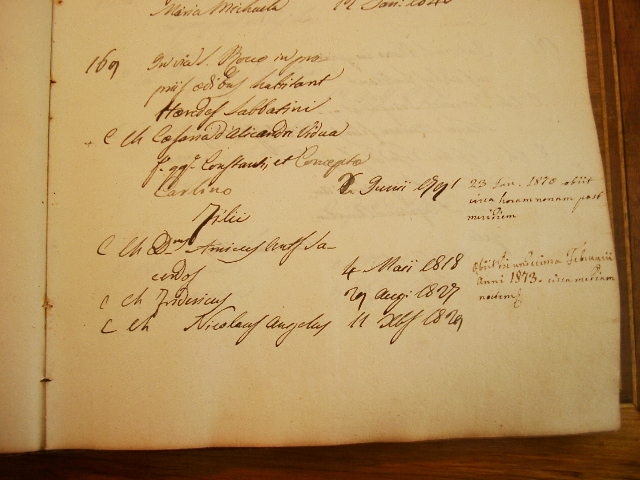 Maria Michaela 12 Jan. 184
169 In via S. Rocco in pro
priis ædibus habitant
Hæredes Sabbatini
C Ch Cæsaria d'Alexandri Vidua
f. qq. Constantii, et Concepta
Carlino Junii 1791
23 Jan. 1870 obiit
circa horam nonam post
meridiem
Filii
C Ch Dnus Amicus Ants Sa-
cerdos 4 Maii 1818
obiit die undecima Februarii
Anni 1873. circa mediam
noctem
C Ch Fridericus 29 Augi 1827
C Ch Nicolaus Angelus 11 Xbis 1829